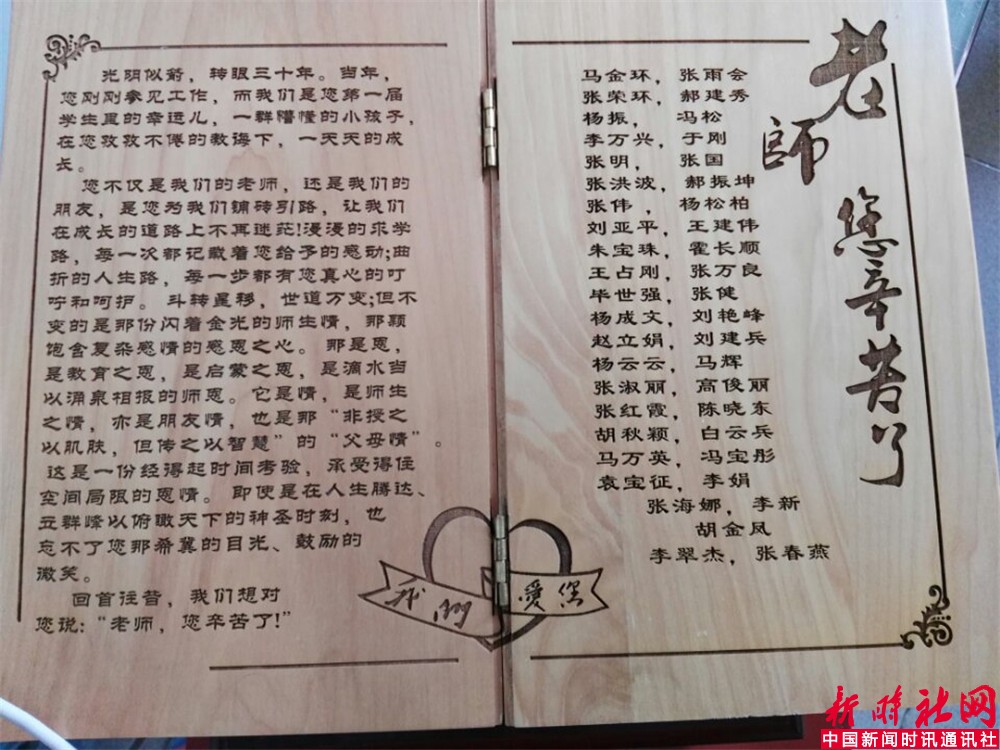 光明似箭，转眼三十年。当年，
您刚刚参见工作，而我们是您第一届
学生里的幸运儿，一群懵懂的小孩子，
在您孜孜不倦的教诲下，一天天的成
长。
您不仅是我们的老师，还是我们的
朋友，是您为我们铺砖引路，让我们
在成长的道路上不再迷茫!漫漫的求学
路，每一次都记载着您给予的感动;曲
折的人生路，每一步都有您真心的叮
咛和呵护。斗转星移，世道万变;但不
变的是那份闪着金光的师生情，那颗
饱含复杂感情的感恩之心。那是恩，
是教育之恩，是启蒙之恩，是滴水当
以涌泉相报的师恩。它是情，是师生
之情，亦是朋友情，也是那“非授之
以肌肤，但传之以智慧”的“父母情”。
这是一份经得起时间考验，承受得住
空间局限的恩情。即使是在人生腾达、
立群峰以俯瞰天下的神圣时刻，也
忘不了您那希冀的目光、鼓励的
微笑。
回首往昔，我们想对
您说:“老师，您辛苦了!”
我们
愛您
马金环，张雨会
张荣环，郝建秀
杨振，冯松
李万兴，于刚
张明，张国
张洪波，郝振坤
张伟，杨松柏
刘亚平，王建伟
朱宝珠，霍长顺
王占刚，张万良
毕世强，张健
杨成文，刘艳峰
赵立娟，刘建兵
杨云云，马辉
张淑丽，高俊丽
张红霞，陈晓东
胡秋颖，白云兵
马万英，冯宝彤
袁宝征，李娟
张海娜，李新
胡金凤
李翠杰，张春燕
老師
您辛苦了
新时社网
中国新闻时讯通讯社